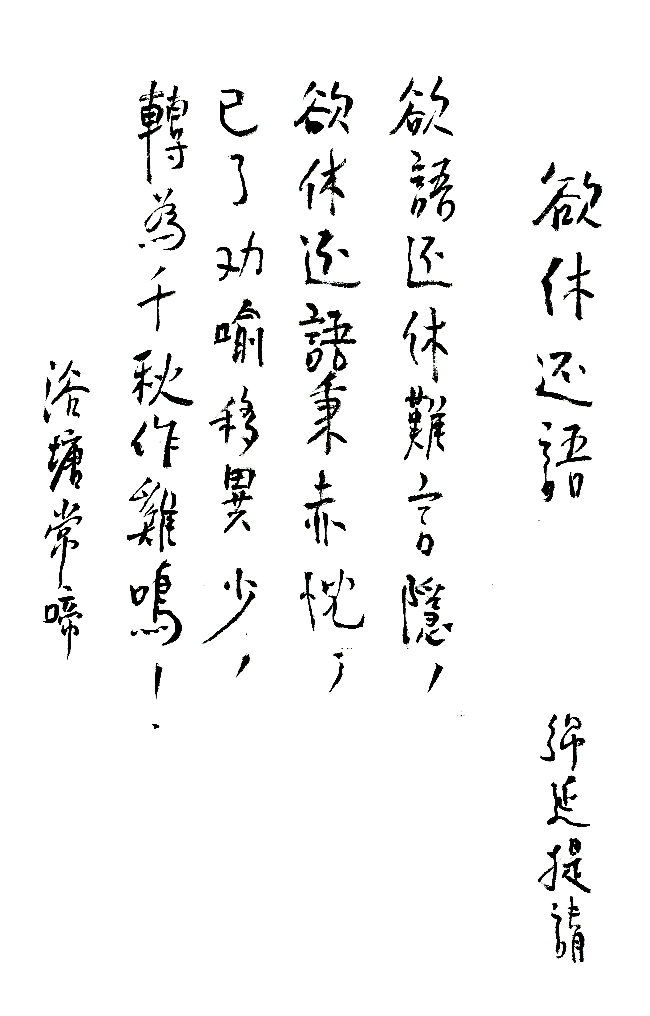 欲休还語
綿延提請
欲語还休難言隱，
欲休还語秉赤忱，
已了劝喻移異少，
轉為千秋作雞鳴！
浴塘常啼